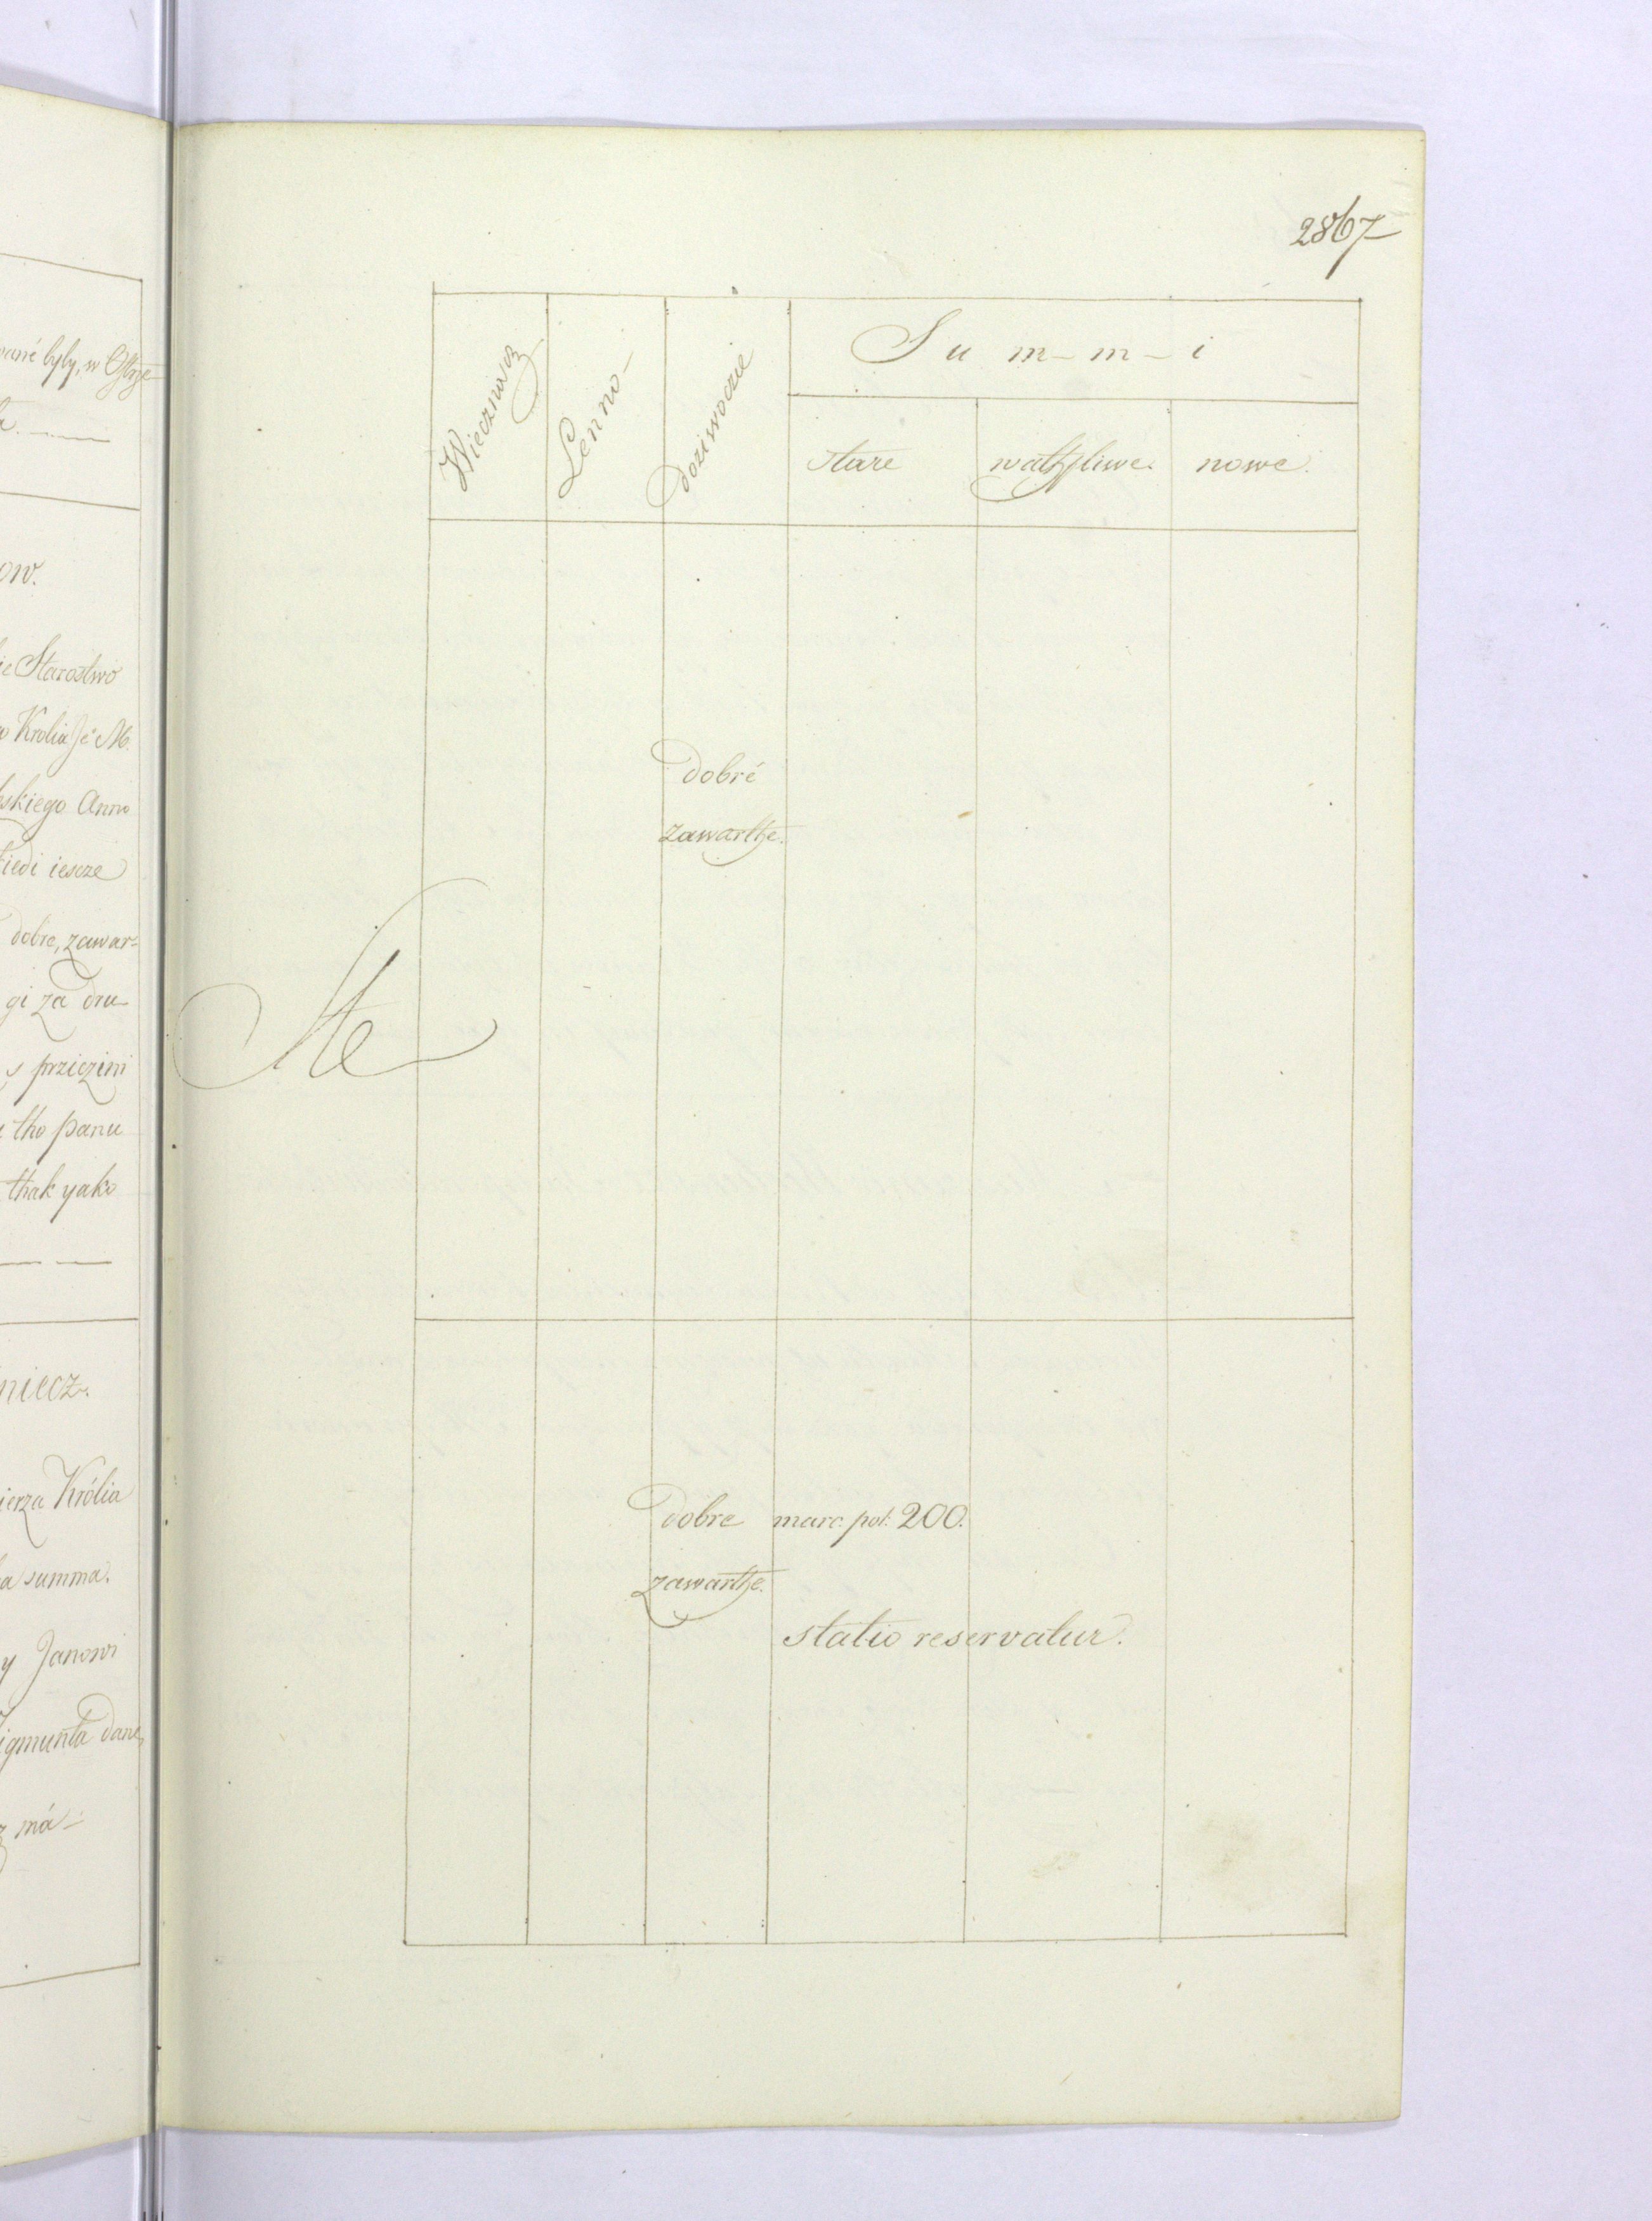 vané były, w Ostrze-
ow.
ie Starostwo
Krolia Je M.
skiego Anno
iedi iescze
dobre, zawar-
gi za dru-
s prziczini
tho panu
thak yako
niecz.
ierza Królia
a summa.
y Janowi
igmunta dane,
z má-
2867
Wiecznoscz
Lenno-
doziwoczie
Su m-m-i
stare
wathpliwe.
nowe.
dobré
zawarthe.
Ste
dobre marc. pol. 200.
zawarthe.
statio reservatur.